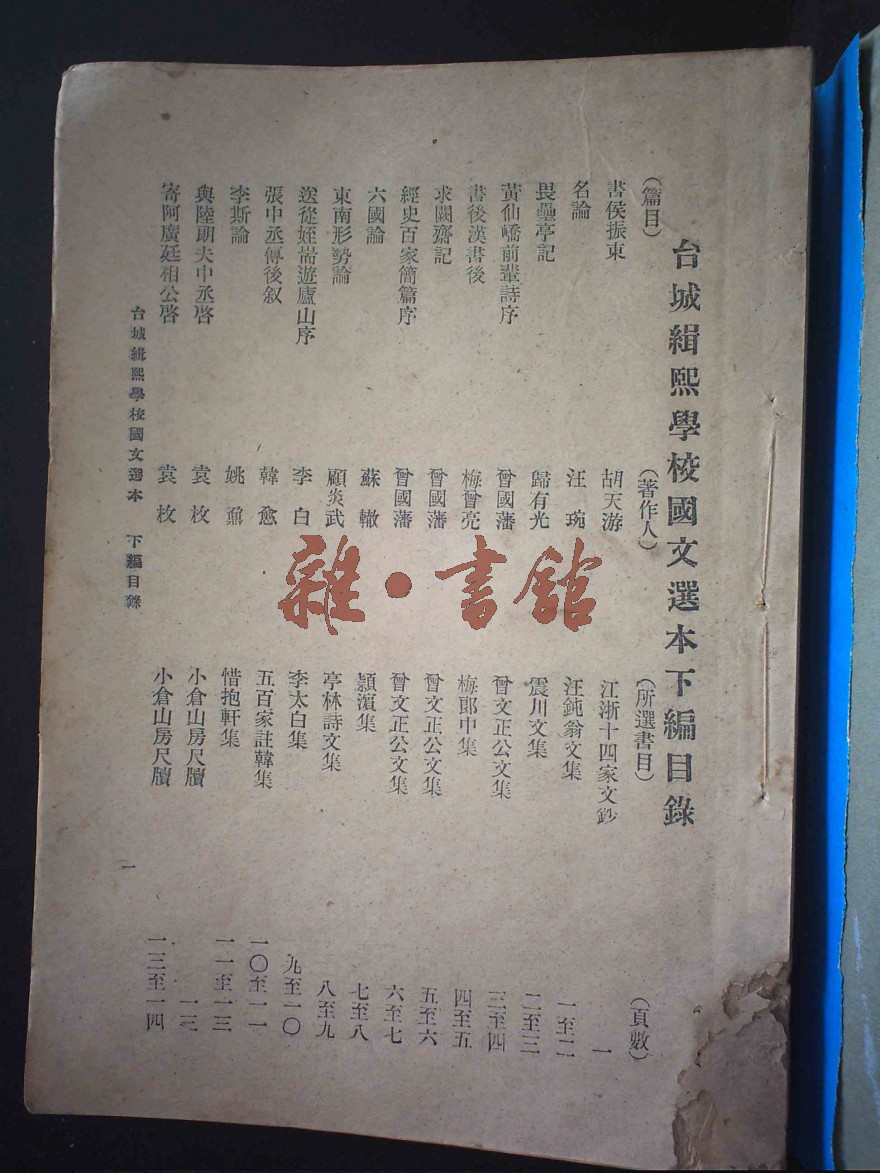 台城緝熙學校國文選本下編目錄
(篇目) (著作人) (所選書目) (頁數)
書侯振東 胡天游 江浙十四家文鈔 一
名論 汪琬 汪鈍翁文集 一至二
畏壘亭記 歸有光 震川文集 二至三
黃仙嶠前輩詩序 曾國藩 曾文正公文集 三至四
書後漢書後 梅曾亮 梅郎中集 四至五
求闕齋記 曾國藩 曾文正公文集 五至六
經史百家簡篇序 曾國藩 曾文正公文集 六至七
六國論 蘇轍 潁濱集 七至八
東南形勢論 顧炎武 亭林詩文集 八至九
送從姪耑遊廬山序 李白 李太白集 九至一〇
張中丞傳後叙 韓愈 五百家註韓集 一〇至一一
李斯論 姚鼐 惜抱軒集 一一至一三
與陸朗夫中丞啓 袁枚 小倉山房尺牘 一三
寄阿廣廷相公啓 袁枚 小倉山房尺牘 一三至一四
台城緝熙學校國文選本 下編目錄 一
雜·書館